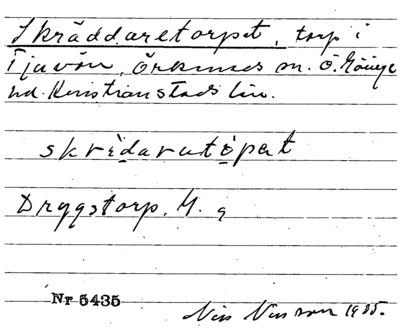 Skräddaretorpet, torp i
Tjuvön, Örkeneds sn. Ö. Göinge
hd. Kristianstads län.
skrèdaratòpet
Dryggstorp. M. 9
Nr 5435
Nils Nilsson 1925.